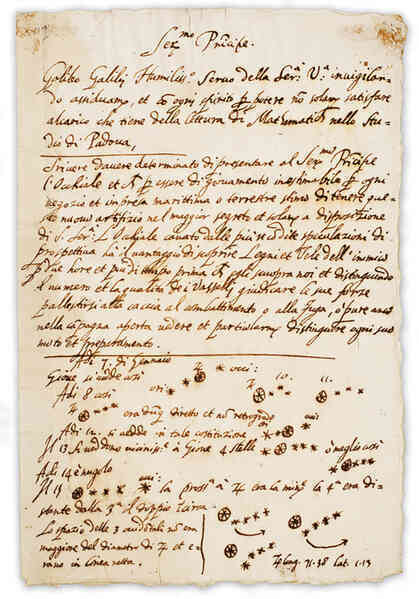 Ser.mo Prīcipe.
Galileo Galilej Humiliss.o Servo della Ser.a V.a invigilan-
do assiduam.te et cō ogni spirito p potere nō solam. satisfare
al carico che tiene della lettura di Mathematich. nello Stu-
dio di Padova,
Scrivere d'avere determinato di presentare al Ser.mo Prīcipe
l'Occhiale et p essere di giovamento inestimabile p ogni
negozio et impresa marittima o terrestre stimo di tenere que-
sto nuovo artifizio nel maggior segreto et solam. a disposizione
di S. Ser.a L'Occhiale cavato dalle più recōdite speculazioni di
prospettiva ha il vantaggio di scoprire Legni et Vele dell'inimico
p due hore et più di tempo prima che egli scuopra noi et distinguendo
il numero et la qualità de i Vasselli giudicare le sue forze
pallestirsi alla caccia al combattimento o alla fuga, o pure anco
nella cāpagna aperta vedere et particolarm. distinguere ogni suo
moto et preparamento.
Adì 7 di Gennaio
Giove si vede così ♃ occi:
Adì 8 così ori: 10. 11.
♃ era dūq diretto et nō retrogrado
Adì 12. si vedde in tale costituzione occi:
Il 13 si veddono minimis.i à Giove 4 stelle ò meglio così
Adì 14 è nugolo
Il 15 la pross.a à ♃ era la min.e la 4.a era di-
stante dalla 3.a il doppio īcirca
Lo spazio delle 3 occidētali nō era
maggiore del diametro di ♃ et e-
rano in linea retta.
♃ long. 71.38 lat. 1.13